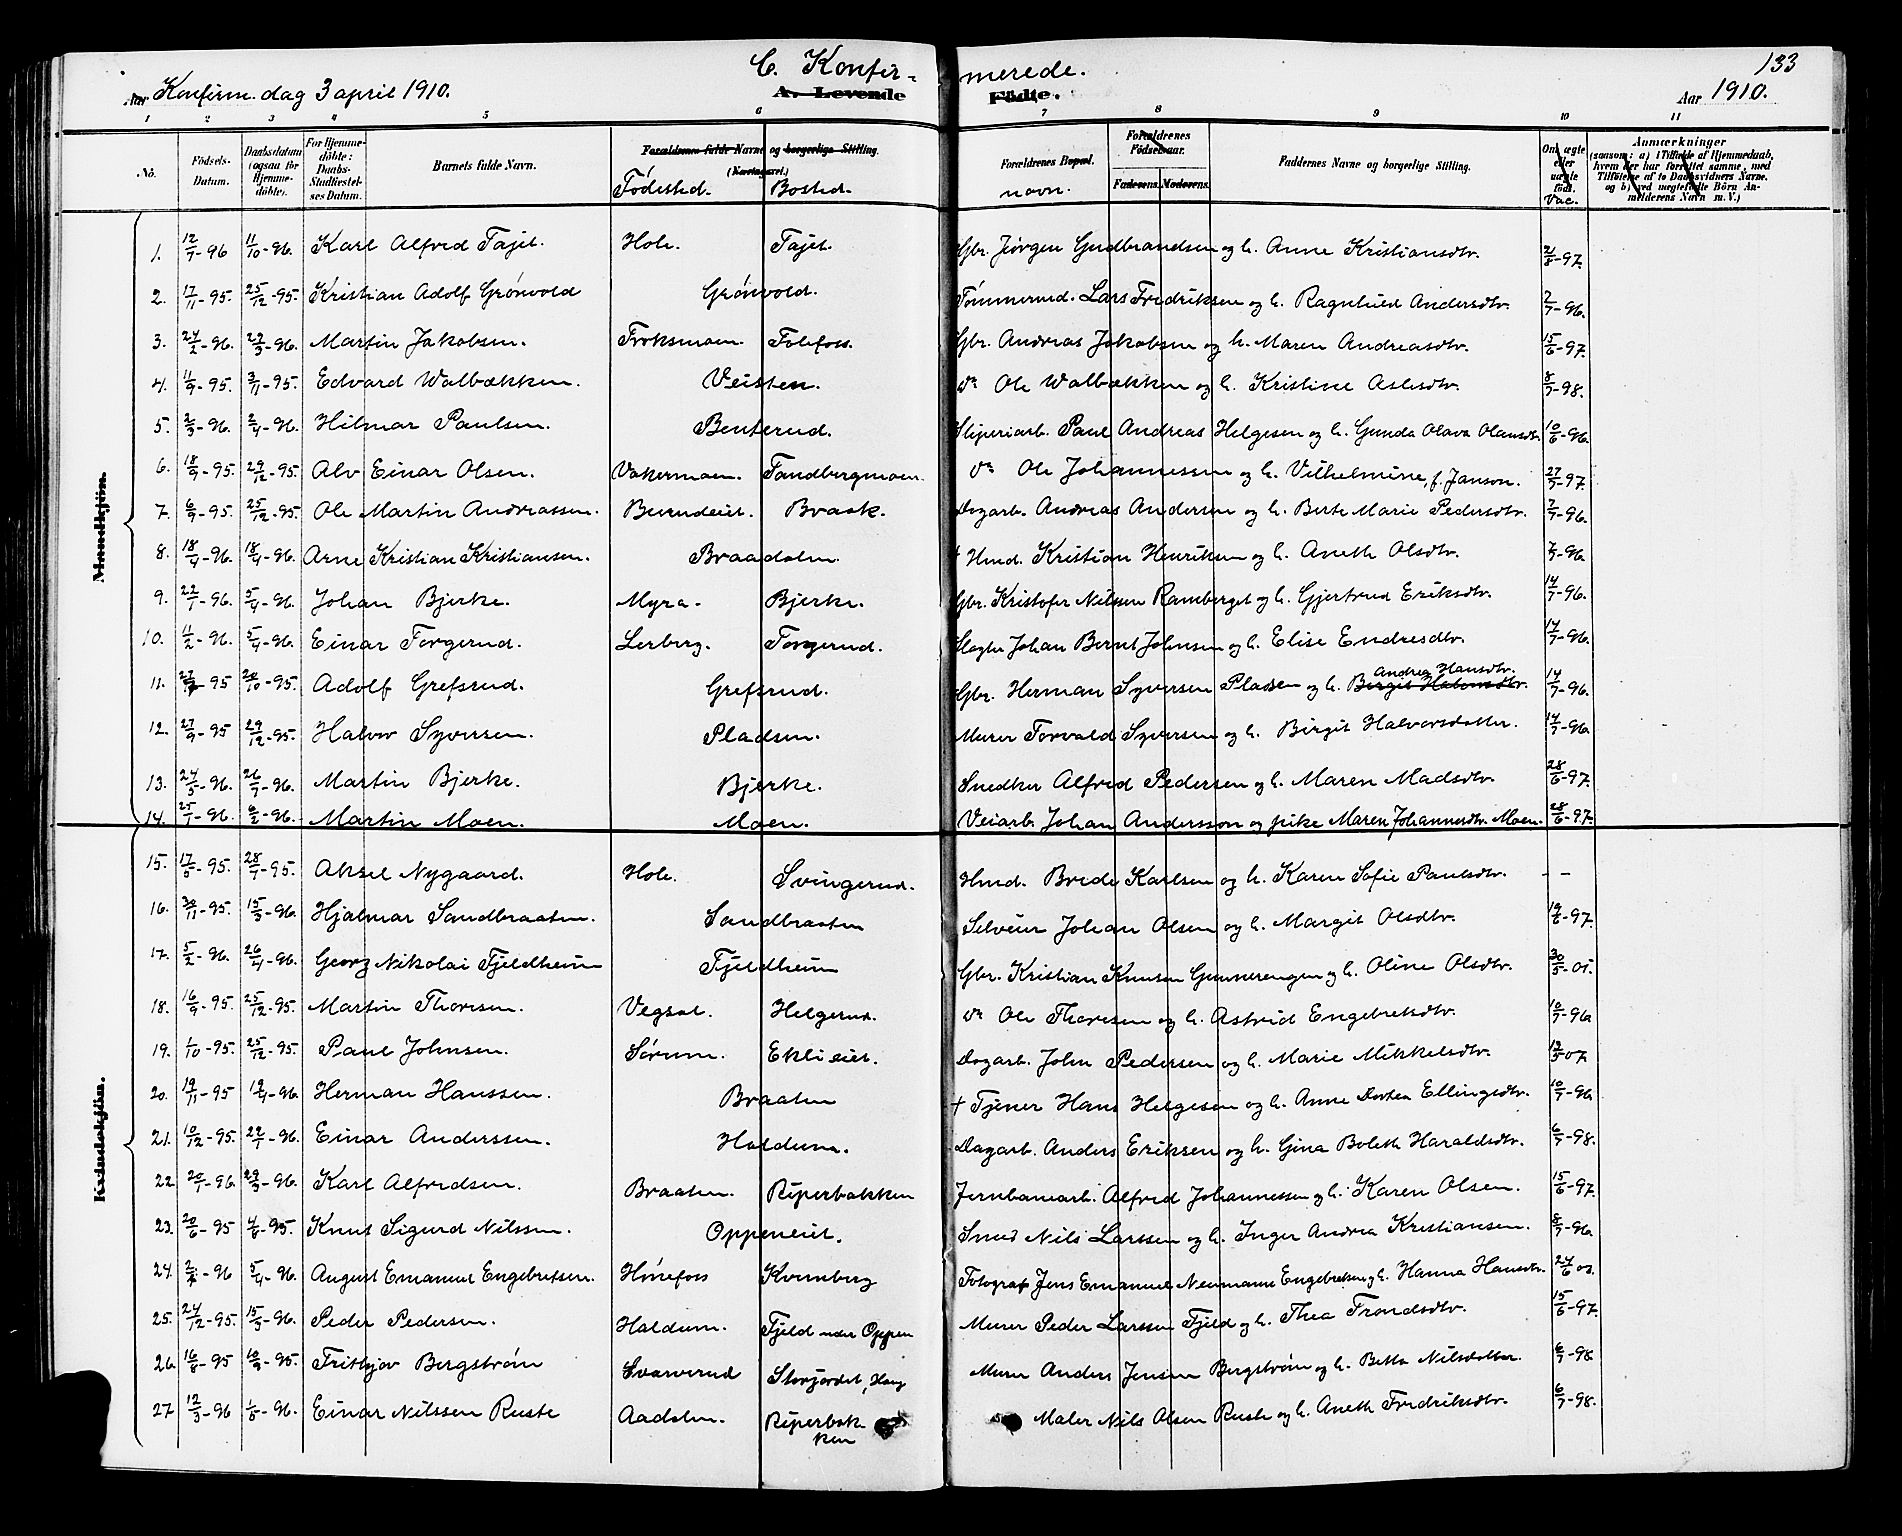 133
C. Konfir- merede.
Aar Konfirm. dag 3 april 1910. A. Levende Födte. Aar 1910.
1 2 3 4 5 6 7 8 9 10 11
No. Födsels-Datum. Daabsdatum (ogsaa for Hjemmedöbte). For Hjemmedöbte: Daabs-Stadfæstelses Datum. Barnets fulde Navn. Forældrenes fulde Navne og borgerlige Stilling. Forældrenes Bopæl. Forældrenes Födselsaar. Faddernes Navne og borgerlige Stilling. Om ægte eller uægte født. Anmærkninger
(saasom: a) i Tilfælde af Hjemmedaab, hvem der har forrettet samme, med Tilföielse af to Daabsvidners Navne, og b) ved uægtefødte Börn Anmelderens Navn m. V.)
Födested. Bosted. navn. Faderens. Moderens. Vac.
Mandkjön.
1. 12/7-96 11/10-96. Karl Alfred Tajet. Hole. Tajet. Gbr. Jörgen Gudbrandsen og h. Anne Kristiansdtr. 21/8-97.
2. 17/11-95. 25/12-95. Kristian Adolf Grönvold Grönvold. Tömmermd. Lars Fredriksen og h. Ragnhild Andersdtr. 2/7-96.
3. 24/2-96. 29/3-96. Martin Jakobsen. Froksmoen. Folefoss. Gbr. Andreas Jakobsen og h. Maren Andreasdtr. 15/6-97.
4. 11/9-95. 3/11-95. Edvard Walbækken. Veisten. Do Ole Walbækken og h. Kristine Aslesdtr. 8/7-98.
5. 2/3-96. 2/4-96. Hilmar Paulsen. Benterud. Sliperiarb. Paul Andreas Helgesen og h. Gunda Olava Olausdtr. 10/6-96.
6. 18/9-95. 29/12-95. Alv Einar Olsen. Vakermoen. Tandbergmoen. Do Ole Johannessen og h. Vilhelmine, f. Janson. 27/7-97.
7. 6/9-95. 25/12-95. Ole Martin Andreassen. Bureneiet. Braak. Dagarb. Andreas Andersen og h. Berte Marie Pedersdtr. 7/7-96.
8. 18/4-96. 18/4-96. Arne Kristian Kristiansen. Braadalen. † Hmd. Kristian Henriksen og h. Aneth Olsdtr. 7/7-96.
9. 22/1-96. 5/4-96. Johan Bjerke. Myra. Bjerke. Gbr. Kristofer Nilssen Ramberget og h. Gjertrud Eriksdtr. 14/7-96.
10. 11/2-96. 5/4-96. Einar Torgerud. Lerberg. Torgerud. Slagter Johan Bernt Johnsen og h. Elise Endresdtr. 14/7-96.
11. 95 20/10-95. Adolf Grefsrud. Grefsrud. Gbr. Herman Syversen Pladsen og h. Birgit Halvorsdtr. Andrea Hansdtr. 14/7-96.
12. 27/9-95 29/12-95. Halvor Syversen. Pladsen. Murer Torvald Syversen og h. Birgit Halvorsdatter. 14/7-96.
13. 24/5-96. 26/7-96. Martin Bjerke. Bjerke. Snedker Alfred Pedersen og h. Maren Madsdtr. 28/6-97.
14. 25/1-96. 6/2-96. Martin Moen. Moen. Veiarb. Johan Andersson og pike Maren Johannesdtr. Moen. 28/6-97.
Kvindekjön.
15. 17/5-95. 28/7-95. Aksel Nygaard. Hole. Svingerud. Hmd. Brede Karlsen og h. Karen Sofie Paulsdtr. - -
16. 30/11-95. 15/3-96. Hjalmar Sandbraaten. Sandbraaten Selveier Johan Olsen og h. Margit Olsdtr. 19/6-97.
17. 5/2-96. 26/4-96. Georg Nikolai Fjeldheim Fjeldheim Gbr. Kristian Knutsen Gunnerengen og h. Oline Olsdtr. 30/5-01.
18. 16/9-95. 25/12-95. Martin Thoresen. Vegsal. Helgerud. Do Ole Thoresen og h. Astrid Engebretsdtr. 10/7-96
19. 1/10-95. 25/12-95. Paul Johnsen. Sörum. Eklieiet. Dagarb. John Pedersen og h. Marie Mikkelsdtr. 13/5-07
20. 19/11-95 12/4-96 Herman Hanssen. Braaten † Tjener Hans Helgesen og h. Anne Dorthea Ellingsdtr. 10/7-96
21. 10/12-95. 22/1-96. Einar Anderssen. Haldum. Dagarb. Anders Eriksen og h. Gina Boleth Haraldsdtr. 6/7-98.
22. 20/1-96. 29/3-96. Karl Alfredsen. Braaten. Riperbakken Jernbanearb. Alfred Johannessen og h. Karen Olsen. 15/6-97.
23. 20/6-95 4/8-95. Knut Sigurd Nilssen. Oppeneiet. Smed Nils Larssen og h. Inger Andrea Kristiansen. 8/7-96.
24. 96 5/4-96. August Emanuel Engebretsen. Hönefoss Kvernberg Fotograf Jens Emanuel Neumann Engebretsen og h. Hanna Hansdtr. 24/6 02.
25. 24/12-95. 15/3-96. Peder Pedersen. Haldum. Fjeld under Oppen Murer Peder Larssen Fjeld og h. Thea Trondsdtr. 15/6-97.
26. 16/8-95 10/9-95. Frithjov Bergström Svarverud Storjordet, Haug Murer Anders Jensen Bergström og h. Betta Nilsdatter. 6/7-98
27. 12/3-96 1/6-96. Einar Nilssen Ruste Aadalen. Riperbakken Maler Nils Olsen Ruste og h. Aneth Fredriksdtr. 6/7-98.